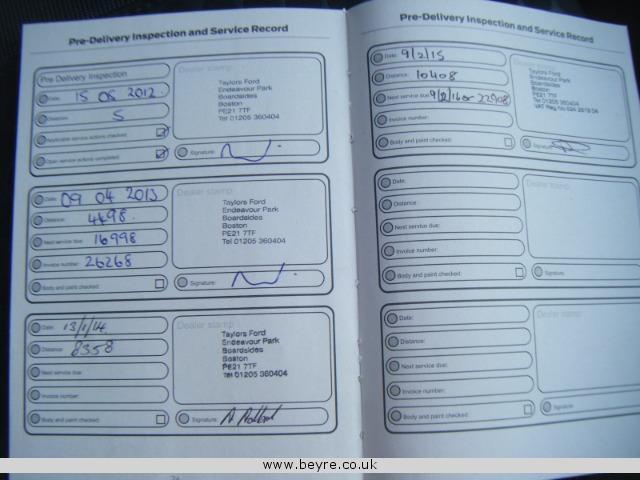 Pre-Delivery Inspection and Service Record
Pre Delivery Inspection
Date: 15 08 2012
Distance: 5
Applicable service actions checked:
Open service actions completed:
Dealer stamp
Taylors Ford
Endeavour Park
Boardsides
Boston
PE21 7TF
Tel 01205 360404
Signature:
Date: 09 04 2013
Distance: 4498
Next service due: 16998
Invoice number: 26268
Body and paint checked:
Dealer stamp
Taylors Ford
Endeavour Park
Boardsides
Boston
PE21 7TF
Tel 01205 360404
Signature:
Date: 13/1/14
Distance: 8358
Next service due:
Invoice number:
Body and paint checked:
Dealer stamp
Taylors Ford
Endeavour Park
Boardsides
Boston
PE21 7TF
Tel 01205 360404
Signature:
Pre-Delivery Inspection and Service Record
Date: 9/2/15
Distance: 10408
Next service due: 9/2/16 or 22908
Invoice number:
Body and paint checked:
Dealer stamp
Taylors Ford
Endeavour Park
Boardsides
Boston
PE21 7TF
Tel 01205 360404
VAT Reg No
Signature:
Date:
Distance:
Next service due:
Invoice number:
Body and paint checked:
Dealer stamp
Signature:
Date:
Distance:
Next service due:
Invoice number:
Body and paint checked:
Dealer stamp
Signature:
www.beyre.co.uk